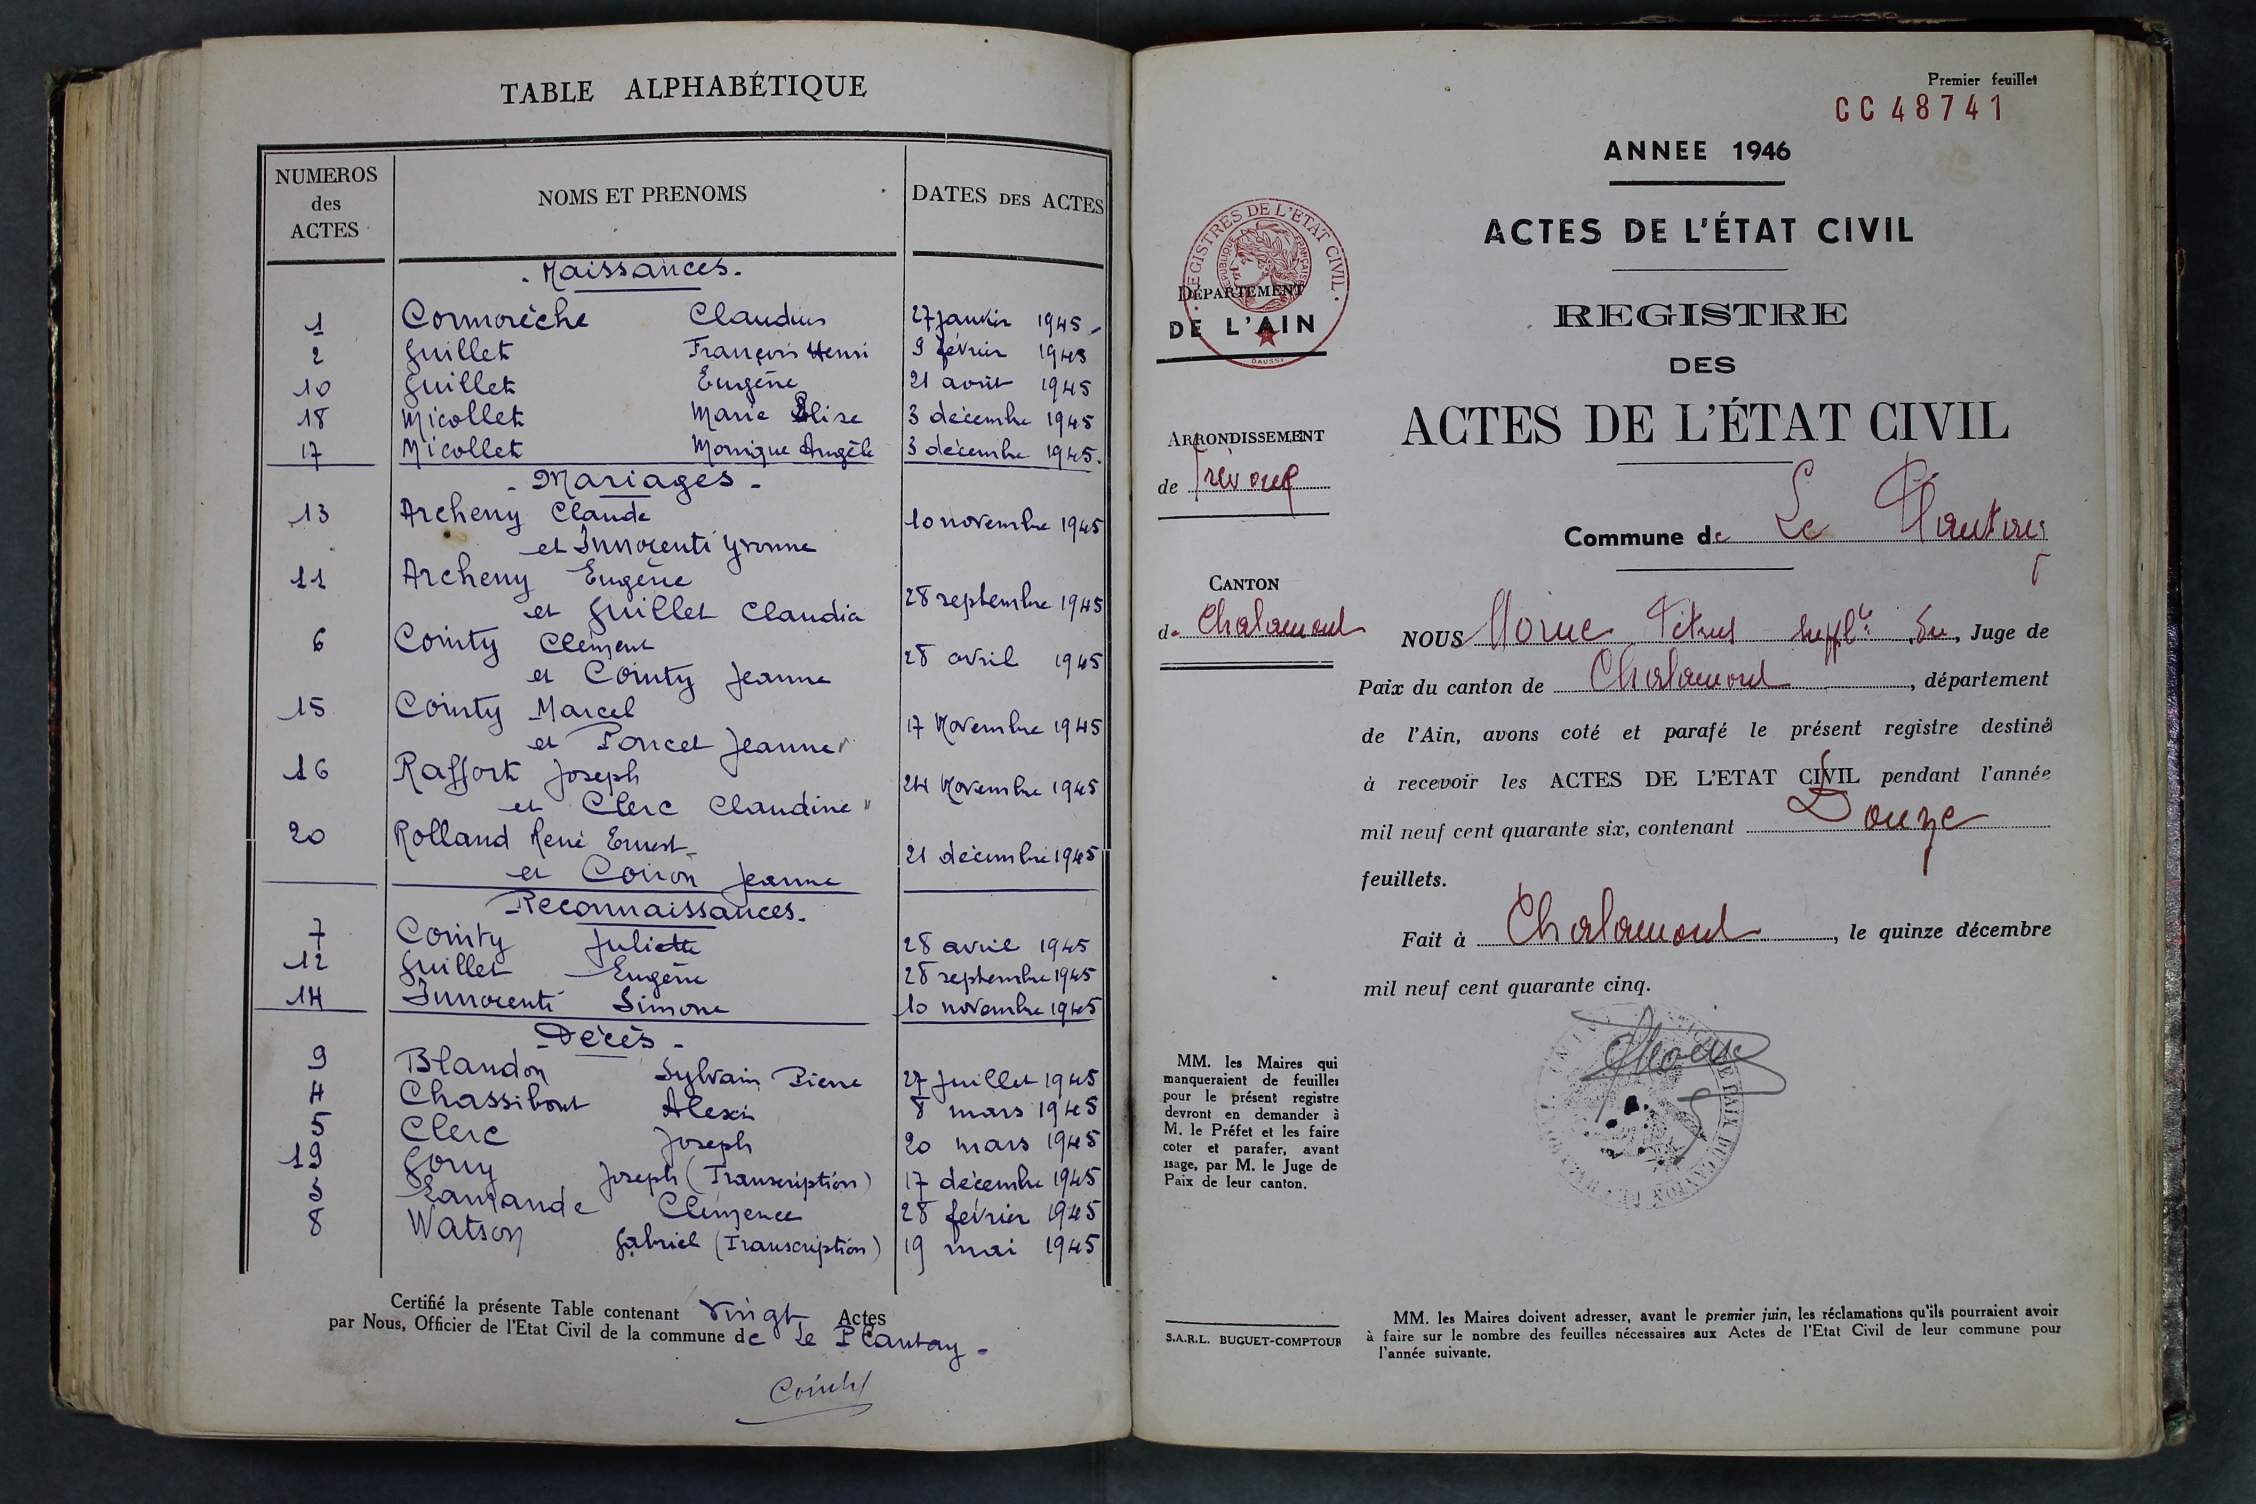 TABLE ALPHABÉTIQUE
NUMEROS des ACTES
NOMS ET PRENOMS
DATES DES ACTES
- Naissances -
1 Cormorèche Claudius 27 janvier 1945
2 Guillet François Henri 9 février 1945
10 Guillet Eugène 21 août 1945
18 Micollet Marie Elise 3 décembre 1945
17 Micollet Monique Angèle 3 décembre 1945.
- Mariages -
13 Archeny Claude
et Innocenti Yvonne 10 novembre 1945
11 Archeny Eugène
et Guillet Claudia 28 septembre 1945
6 Cointy Clément
et Cointy Jeanne 28 avril 1945
15 Cointy Marcel
et Poncet Jeanne 17 Novembre 1945
16 Raffort Joseph
et Clerc Claudine 24 Novembre 1945
20 Rolland René Ernest
et Coiron Jeanne 21 décembre 1945
- Reconnaissances -
7 Cointy Juliette 28 avril 1945
12 Guillet Eugène 28 septembre 1945
14 Innocenti Simone 10 novembre 1945
- Décès -
9 Blandon Sylvain Pierre 27 Juillet 1945
4 Chassibout Alexis 8 mars 1945
5 Clerc Joseph 20 mars 1945
19 Gouy Joseph (Transcription) 17 décembre 1945
3 Lamande Clémence 28 février 1945
8 Watson Gabriel (Transcription) 19 mai 1945
Certifié la présente Table contenant vingt Actes
par Nous, Officier de l'Etat Civil de la commune de Le Plantay -
Premier feuillet
CC 48741
ANNEE 1946
ACTES DE L'ÉTAT CIVIL
REGISTRE
DES
ACTES DE L'ÉTAT CIVIL
REGISTRES DE L'ETAT CIVIL
REPUBLIQUE FRANÇAISE
DAUSSY
DÉPARTEMENT
DE L'AIN
ARRONDISSEMENT
de Trévoux
CANTON
de Chalamont
Commune de Le Plantay
NOUS Morne Pétrus suppl. du, Juge de
Paix du canton de Chalamont, département
de l'Ain, avons coté et parafé le présent registre destiné
à recevoir les ACTES DE L'ETAT CIVIL pendant l'année
mil neuf cent quarante six, contenant Douze
feuillets.
Fait à Chalamont, le quinze décembre
mil neuf cent quarante cinq.
MM. les Maires qui
manqueraient de feuilles
pour le présent registre
devront en demander à
M. le Préfet et les faire
coter et parafer, avant
usage, par M. le Juge de
Paix de leur canton.
S.A.R.L. BUGUET-COMPTOUR
MM. les Maires doivent adresser, avant le premier juin, les réclamations qu'ils pourraient avoir
à faire sur le nombre des feuilles nécessaires aux Actes de l'Etat Civil de leur commune pour
l'année suivante.